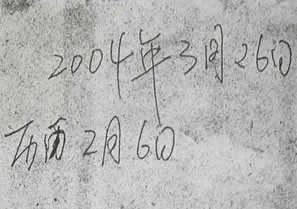 2004年3月26日
2月6日